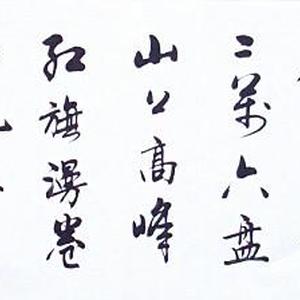 二萬六盘
山上高峰
红旗漫卷